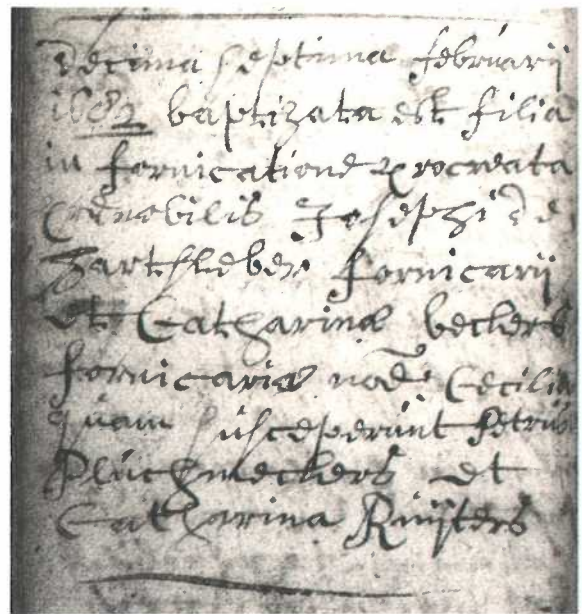 decima septima februarij
1682 baptizata est filia
in fornicatione procreata
Josephi de
hartsleben fornicarij
et Catharinæ beckers
fornicariæ Cecilia
quam susceperunt Petrus
Pluchmeckers et
Catharina Ruijters